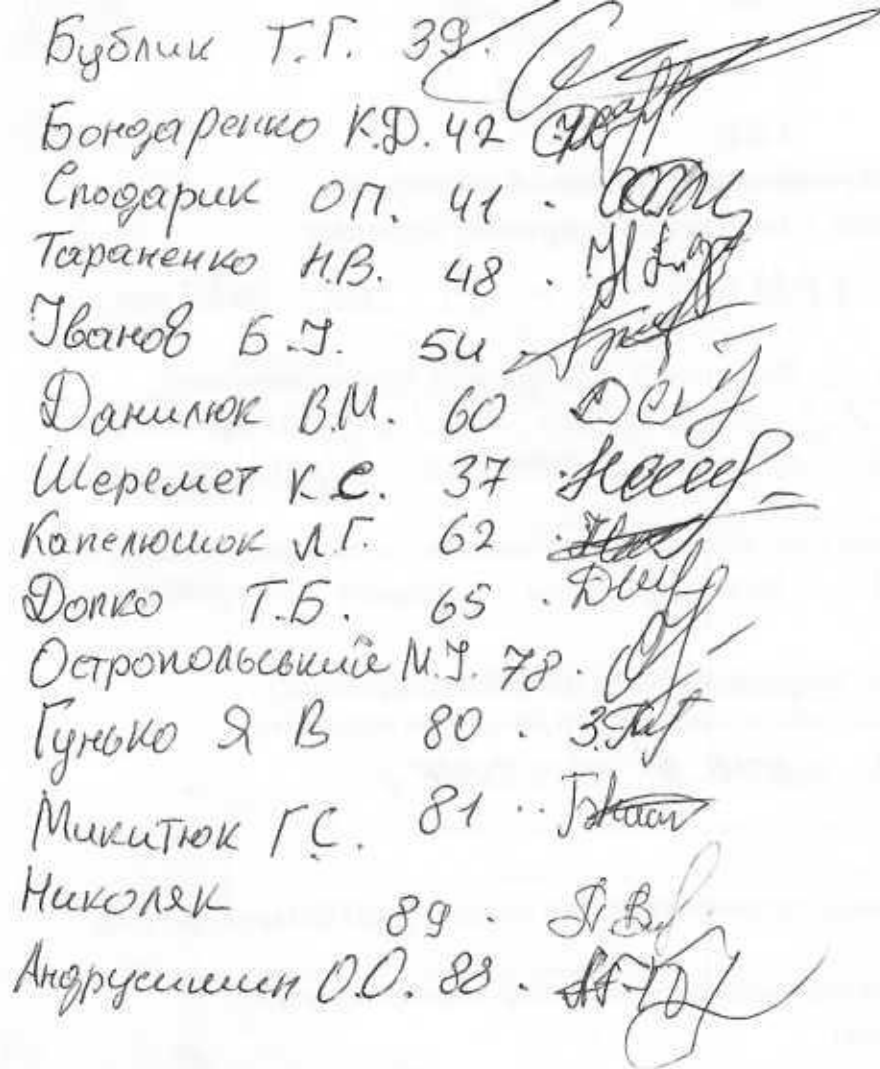 Бублик Т.Г. 39.
Бондаренко К.Д. 42
Сподарик О П. 41 .
Тараненко Н.В. 48 .
Іванов Б.І. 54 .
Данилюк В.М. 60
Шеремет К.С. 37 .
Капелюшок Л.Г. 62 .
Допко Т.Б. 65 .
Остропольський М.І. 78 .
Гунько Я В 80 .
Микитюк Г.С. 81 ..
Николяк 89 .
Андрусишин О.О. 88 .